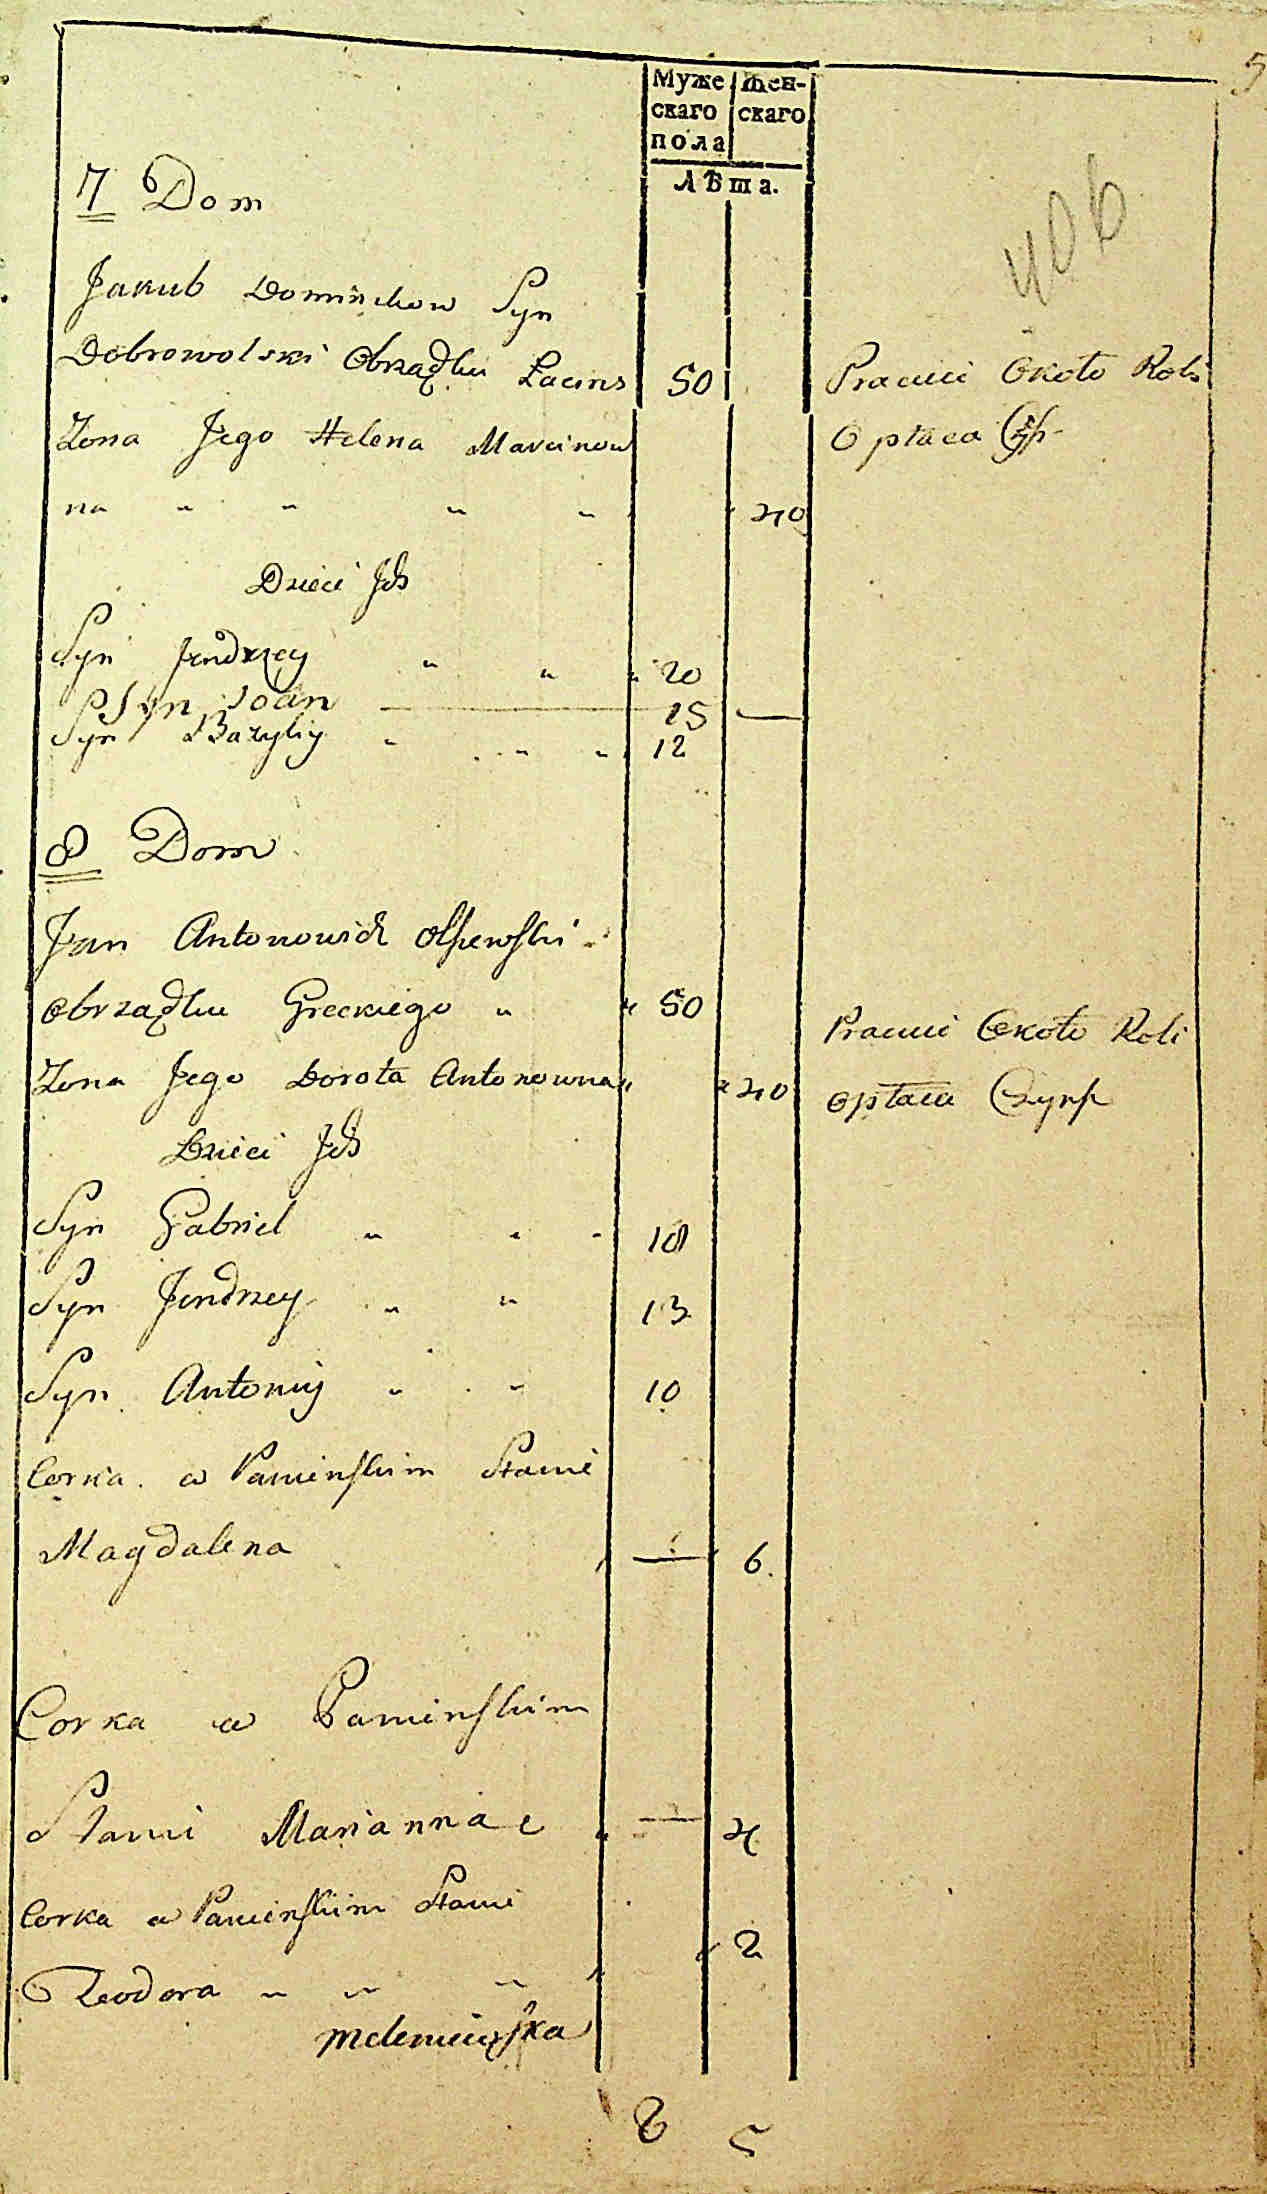 5
Муже
скаго
пола
Жен-
скаго
Лѣта.
406
7 Dom
Jakub Dominikow Syn
Dobrowolski Obrządku Łacins 50 Pracuie Około Roli
Zona Jego Helena Marcinow Opłaca
na " " " " 40
Dzieci Ich
Syn Jendrzey " " " 20
Syn Joan 15
Syn Bazyliy " " " 12
8 Dom
Jan Antonowicz
Obrządku Greckiego " " 50 Pracuie Około Roli
Zona Jego Dorota Antonowna " " 40 Opłaca Czynsz
Dzieci Ich
Syn Gabriel " " " 18
Syn Jendrzey " " 13
Syn Antoniy " " 10
Corka w Panienskim Stanie
Magdalena 6.
Corka w Panienskim
Stanie Marianna 4
Corka w Panienskim Stanie
2
Teodora " " "
8 5